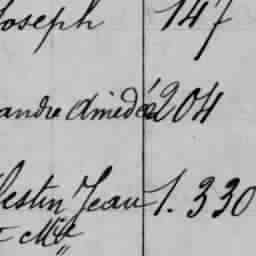 Joseph 147
andre Amédée 204
lestin Jean 1. 330